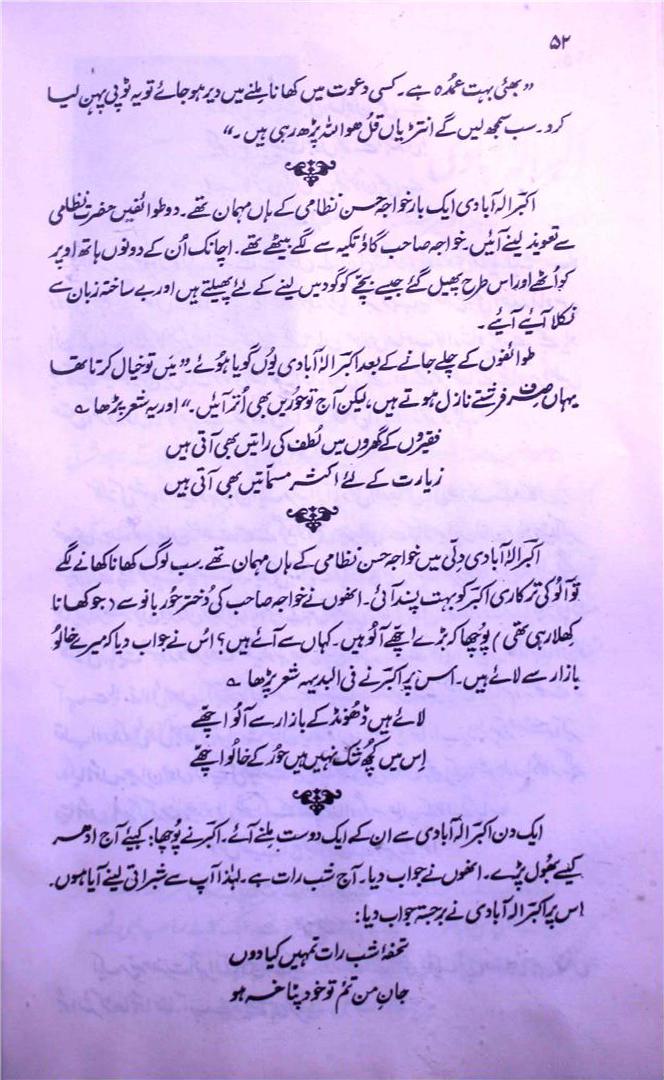 ۵۲
”بھئی بہت عمدہ ہے۔ کسی دعوت میں کھانا ملنے میں دیر ہو جائے تو یہ ٹوپی پہن لیا
کرو۔ سب سمجھ لیں گے انتڑیاں قُل ھواللہ پڑھ رہی ہیں۔“
اکبر الٰہ آبادی ایک بار خواجہ حسن نظامی کے ہاں مہمان تھے۔ دو طوائفیں حضرت نظامی
سے تعویذ لینے آئیں۔ خواجہ صاحب گاؤ تکیہ سے لگے بیٹھے تھے۔ اچانک اُن کے دونوں ہاتھ اوپر
کو اُٹھے اور اس طرح پھیل گئے جیسے بچّے کو گود میں لینے کے لئے پھیلتے ہیں اور بے ساختہ زبان سے
نکلا آئیے آئیے۔
طوائفوں کے چلے جانے کے بعد اکبر الٰہ آبادی یُوں گویا ہوئے۔ ”میں تو خیال کرتا تھا
یہاں صرف فرشتے نازل ہوتے ہیں، لیکن آج تو حُوریں بھی اُتر آئیں۔“ اور یہ شعر پڑھا ؎
فقیروں کے گھروں میں لُطف کی راتیں بھی آتی ہیں
زیارت کے لئے اکثر مسمّاتیں بھی آتی ہیں
اکبر الٰہ آبادی دلّی میں خواجہ حسن نظامی کے ہاں مہمان تھے۔ سب لوگ کھانا کھانے لگے
تو آلُو کی ترکاری اکبر کو بہت پسند آئی۔ انھوں نے خواجہ صاحب کی دُختر حُور بانو سے (جو کھانا
کھلا رہی تھی) پُوچھا کہ بڑے اچھّے آلُو ہیں۔ کہاں سے آئے ہیں؟ اُس نے جواب دیا کہ میرے خالُو
بازار سے لائے ہیں۔ اس پر اکبر نے فی البدیہہ شعر پڑھا ؎
لائے ہیں ڈھونڈ کے بازار سے آلُو اچھّے
اِس میں کچُھ شک نہیں ہیں حُور کے خالُو اچھّے
ایک دن اکبر الٰہ آبادی سے ان کے ایک دوست مِلنے آئے۔ اکبر نے پُوچھا: کہیئے آج ادھر
کیسے بُھول پڑے۔ انھوں نے جواب دیا۔ آج شب رات ہے۔ لہٰذا آپ سے شبراتی لینے آیا ہوں۔
اس پر اکبر الٰہ آبادی نے برجستہ جواب دیا:
تحفۂ شب رات تمہیں کیا دوں
جانِ من تُم تو خود پٹاخہ ہو